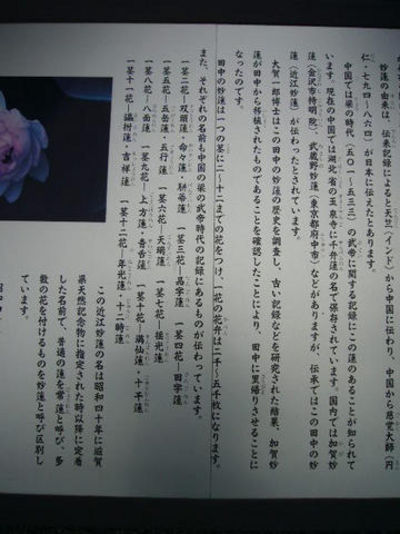 妙蓮の由来は、伝来記録によると天竺（インド）から中国に伝わり、中国から慈覚大師（円
仁・七九四〜八六四）が日本に伝えたとあります。
中国では梁の時代（五〇一〜五三三）の武帝に関する記録にこの蓮のあることが知られて
います。現在の中国では湖北省の玉泉寺に千弁蓮の名で保存されています。国内では加賀妙
蓮（金沢市持明院）、武蔵野妙蓮（東京都府中市）などがありますが、伝承ではこの田中の妙
蓮（近江妙蓮）が伝わったとされています。
大賀一郎博士はこの田中の妙蓮の歴史を調査し、古い記録などを研究された結果、加賀妙
蓮が田中から移植されたものであることを確認したことにより、田中に里帰りさせることに
なったのです。
田中の妙蓮は一つの茎に二〜十二までの花をつけ、一花の花弁は二千〜五千枚になります。
また、それぞれの名前も中国の梁の武帝時代の記録にあるものが伝わっています。
一茎二花―双頭蓮・命々蓮・駢蔕蓮　一茎三花―品字蓮　一茎四花―田字蓮
一茎五花―五岳蓮・五行蓮　一茎六花―天瑞蓮　一茎七花―揺光蓮
一茎八花―八面蓮　一茎九花―上方蓮・音舌蓮　一茎十花―満仙蓮・十干蓮
一茎十一花―吉祥蓮　一茎十二花―年光蓮・十二時蓮
この近江妙蓮の名は昭和四十年に滋賀
県天然記念物に指定された時以降に定着
した名前で、普通の蓮を常蓮と呼び、多
数の花を付けるものを妙蓮と呼び区別し
ています。